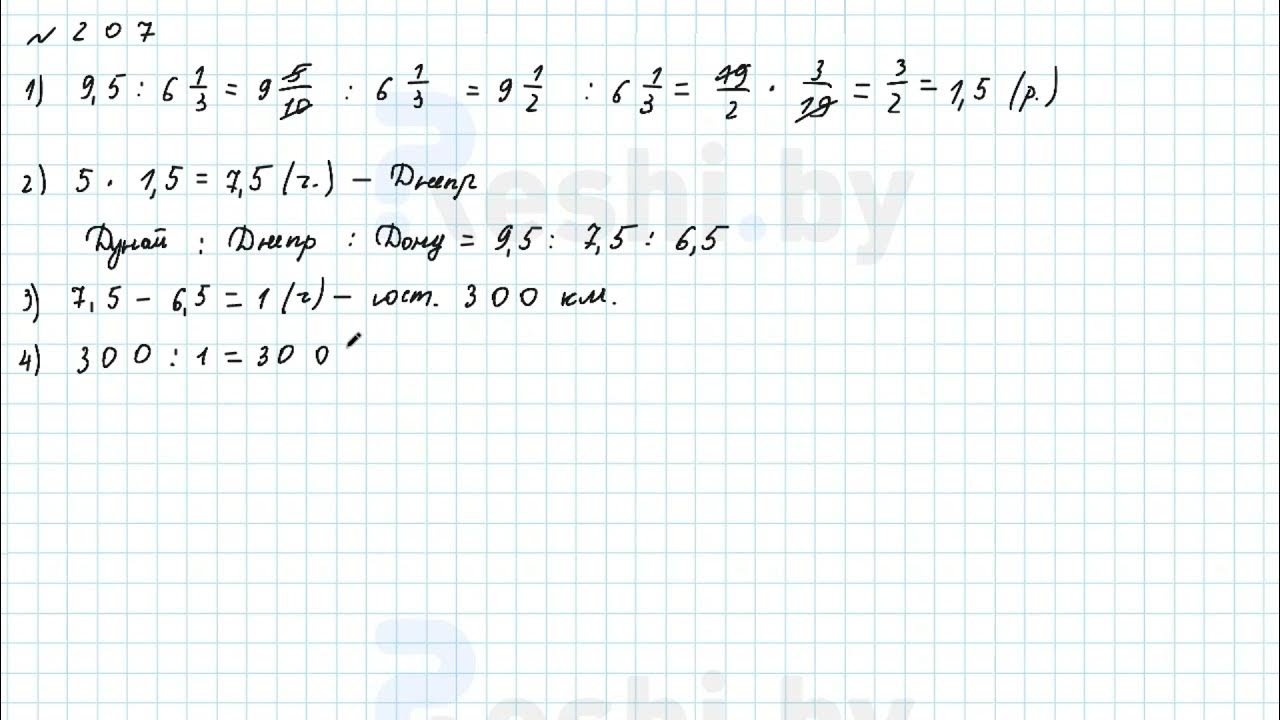 № 207
1) 9,5 : 6 1/3 = 9 5/10 : 6 1/3 = 9 1/2 : 6 1/3 = 19/2 · 3/19 = 3/2 = 1,5 (р.)
2) 5 · 1,5 = 7,5 (ч.) – Днепр
Дунай : Днепр : Дону = 9,5 : 7,5 : 6,5
3) 7,5 – 6,5 = 1 (ч) – сост. 300 км.
4) 300 : 1 = 300
Reshi.by
eshi.by